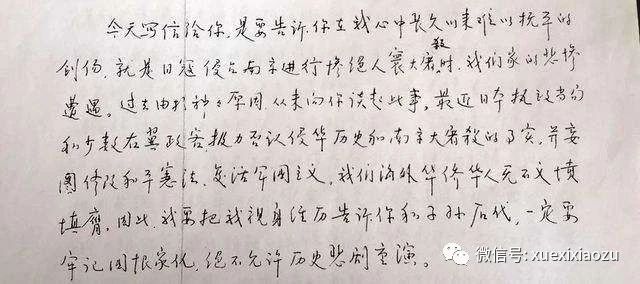 今天写信给你，是要告诉你在我心中长久以来难以抚平的
创伤，就是日冠侵占南京进行惨绝人寰大屠杀时，我们家的悲惨
遭遇。过去由于种々原因，从未向你谈起此事。最近日本执政当局
和少数右翼政客极力否认侵华历史和南京大屠殺的事实，并妄
图修改和平憲法，复活军国主义，我们海外华侨华人无不义愤
填膺。因此，我要把我亲身经历告诉你和子孙后代，一定要
牢记国恨家仇，绝不允许历史悲剧重演。
微信号: xuexixiaozu